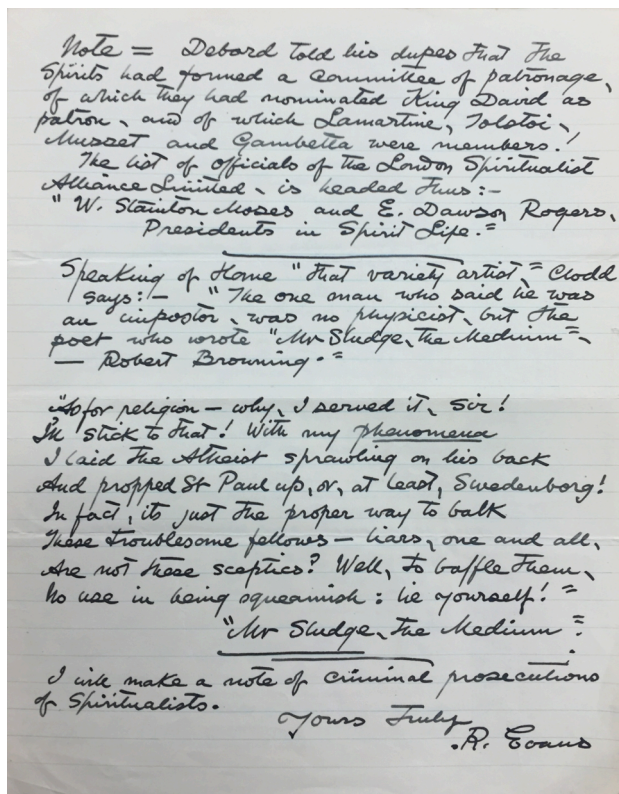 Note = Debord told his dupes that the
Spirits had formed a Committee of patronage,
of which they had nominated King David as
patron, and of which Lamartine, Tolstoi,
Musset and Gambetta were members!
The list of officials of the London Spiritualist
Alliance Limited, is headed thus:-
"W. Stainton Moses and E. Dawson Rogers,
Presidents in Spirit Life."
Speaking of Home "that variety artist," Clodd
says:- "The one man who said he was
an impostor, was no physicist, but the
poet who wrote "Mr Sludge, the Medium",
— Robert Browning."
"As for religion — why, I served it, Sir!
I'll stick to that! With my phenomena
I laid the Atheist sprawling on his back
And propped St Paul up, or, at least, Swedenborg!
In fact, its just the proper way to balk
These troublesome fellows — liars, one and all,
Are not these sceptics? Well, to baffle them,
No use in being squeamish: lie yourself!"
"Mr Sludge, the Medium".
I will make a note of criminal prosecutions
of Spiritualists.
Yours Truly
R. Evans